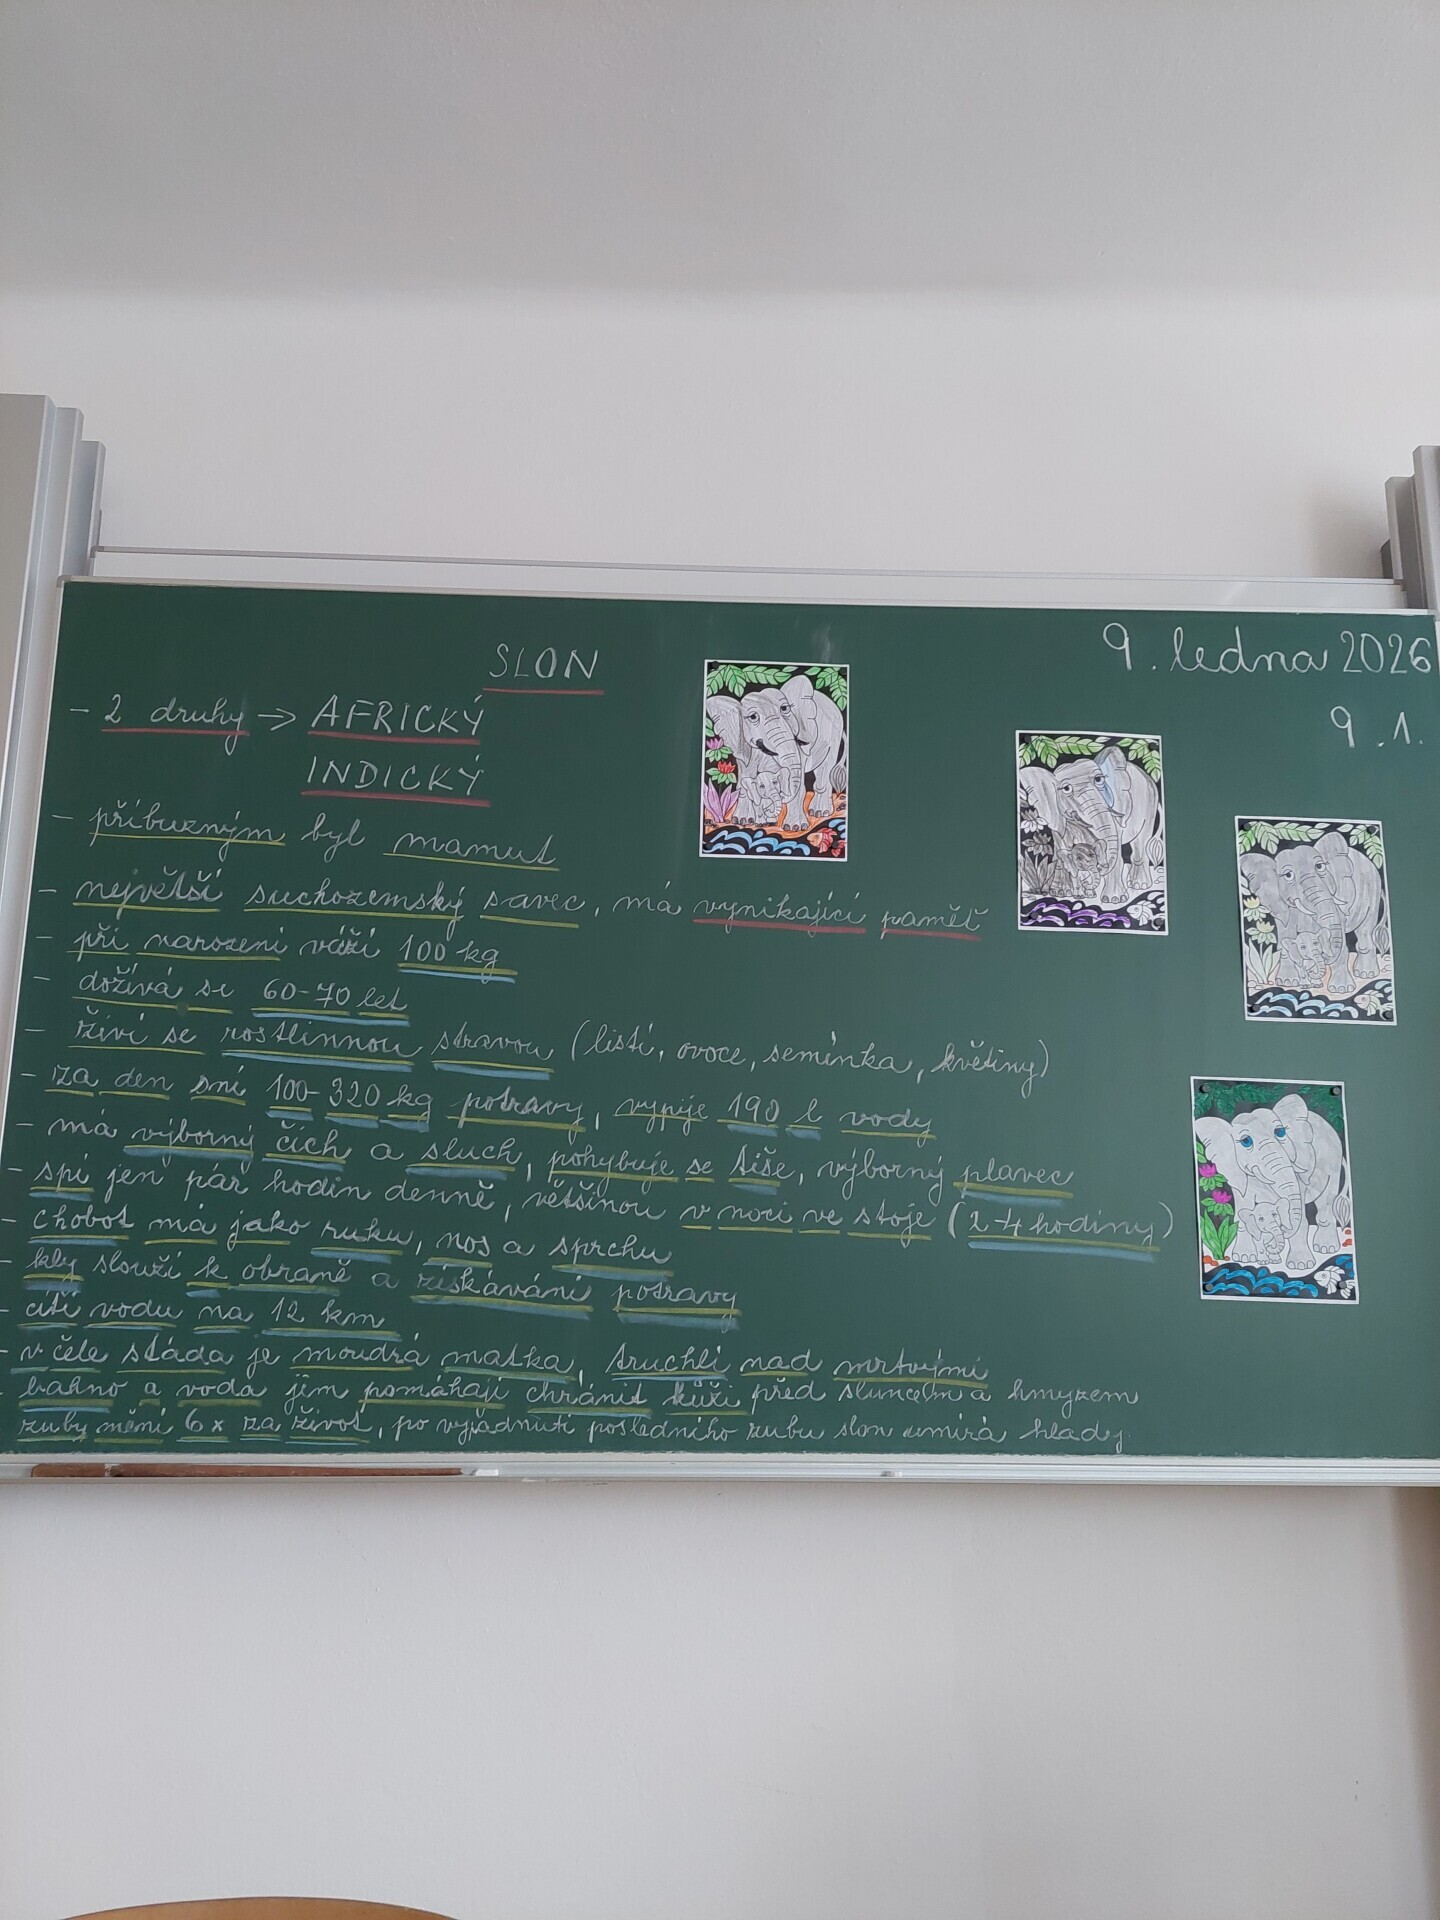 9. ledna 2026
9.1.
SLON
- 2 druhy → AFRICKÝ
INDICKÝ
- příbuzným byl mamut
- největší suchozemský savec, má vynikající paměť
- při narození váží 100 kg
- dožívá se 60-70 let
- živí se rostlinnou stravou (listí, ovoce, semínka, květiny)
- za den sní 100-320 kg potravy, vypije 190 l vody
- má výborný čich a sluch, pohybuje se tiše, výborný plavec
- spí jen pár hodin denně, většinou v noci ve stoje (2-4 hodiny)
- chobot má jako ruku, nos a sprchu
- kly slouží k obraně a získávání potravy
- cítí vodu na 12 km
- v čele stáda je moudrá matka, truchlí nad mrtvými
- bahno a voda jim pomáhají chránit kůži před sluncem a hmyzem
zuby mění 6x za život, po vypadnutí posledního zubu slon umírá hlady